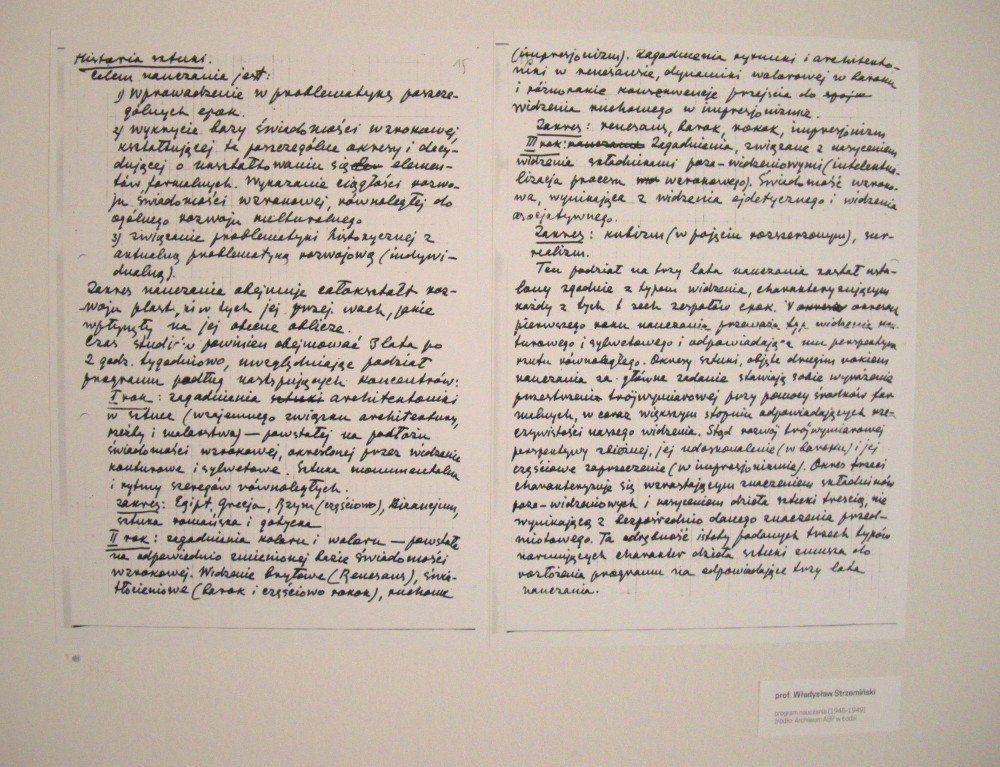 Historia sztuki.
15
Celem nauczania jest:
1) wprowadzenie w problematykę poszcze-
gólnych epok.
2) wykrycie bazy świadomości wzrokowej,
kształtującej te poszczególne okresy i decy-
dującej o ukształtowaniu się elemen-
tów formalnych. Wykazanie ciągłości rozwo-
ju świadomości wzrokowej, równoległej do
ogólnego rozwoju kulturalnego
3) związanie problematyki historycznej z
aktualną problematyką rozwojową (indywi-
dualną).
Zakres nauczania obejmuje całokształt roz-
woju plast, w tych jej jakie
wpłynęły na jej obecne oblicze.
Czas studiów powinien obejmować 3 lata po
2 godz. tygodniowo, uwzględniając podział
programu podług następujących koncentrów:
I rok: zagadnienia sztuki architektoniki
w sztuce (wzajemnego związku architektury,
rzeźby i malarstwa) — powstałej na podłożu
świadomości wzrokowej, określonej przez widzenie
konturowe i sylwetowe. Sztuka monumentalna
i rytmy szeregów równoległych.
zakres: Egipt, Grecja, Rzym (częściowo), Bizancjum,
sztuka romańska i gotycka
II rok: zagadnienia koloru i waloru — powstałe
na odpowiednio zmienionej bazie świadomości
wzrokowej. Widzenie bryłowe (Renesans), świa-
tłocieniowe (barok i częściowo rokok), ruchome
(impresjonizm). Zagadnienia rysunku i architekto-
niki w renesansie, dynamiki walorowej w baroku
i różnorakie konsekwencje przejścia do
widzenia ruchomego w impresjonizmie.
Zakres: renesans, barok, rokok, impresjonizm
III rok: nauczania Zagadnienia, związane z nasyceniem
widzenia składnikami poza-widzeniowymi (intelektua-
lizacja procesu wzrokowego). Świadomość wzroko-
wa, wynikająca z widzenia ejdetycznego i widzenia
asocjatywnego.
Zakres: kubizm (w pojęciu rozszerzonym), sur-
realizm.
Ten podział na trzy lata nauczania został usta-
lony zgodnie z typem widzenia, charakteryzującym
każdy z tych trzech zespołów epok. W okresie okresu
pierwszego roku nauczania przeważa typ widzenia kon-
turowego i sylwetowego i odpowiadająca mu perspektywa
rzutu równoległego. Okresy sztuki, objęte drugim rokiem
nauczania za główne zadanie stawiają sobie wyrażenie
przestrzeni trójwymiarowej przy pomocy środków for-
malnych, w coraz większym stopniu odpowiadających rze-
czywistości naszego widzenia. Stąd rozwój trójwymiarowej
perspektywy zbieżnej, jej udoskonalenie (w baroku) i jej
częściowe zaprzeczenie (w impresjonizmie). Okres trzeci
charakteryzuje się wzrastającym znaczeniem składników
poza-widzeniowych i nasyceniem dzieła sztuki treścią, nie
wynikającą z bezpośrednio danego znaczenia przed-
miotowego. Ta odrębność istoty podanych trzech typów
narzucających charakter dzieła sztuki zmusza do
rozłożenia programu na odpowiadające trzy lata
nauczania.
prof. Władysław Strzemiński
program nauczania (1945-1949)
źródło: Archiwum ASP w Łodzi